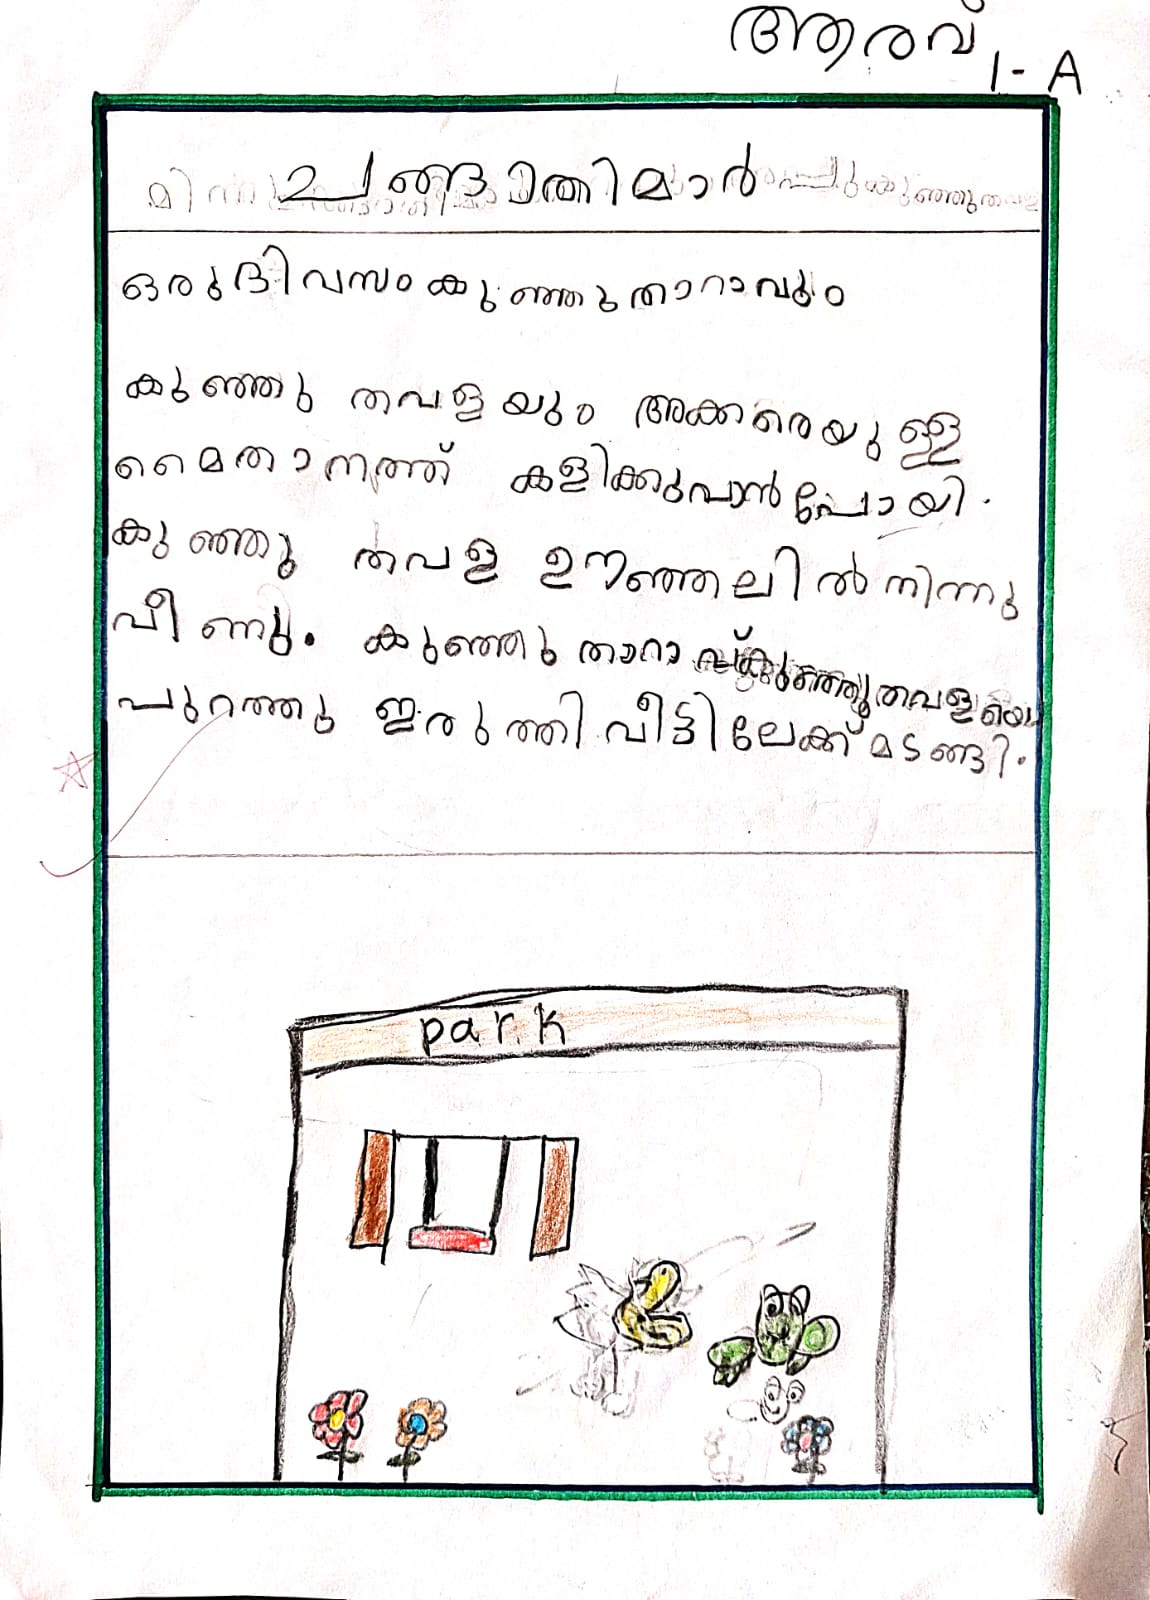 ആരവ്
1-A
ചങ്ങാതിമാർ
ഒരു ദിവസം കുഞ്ഞു താറാവും
കുഞ്ഞു തവളയും അക്കരെയുള്ള
മൈതാനത്ത് കളിക്കുവാൻ പോയി.
കുഞ്ഞു തവള ഊഞ്ഞലിൽ നിന്നു
വീണു. കുഞ്ഞു താറാവ് കുഞ്ഞു തവളയെ
പുറത്തു ഇരുത്തി വീട്ടിലേക്ക് മടങ്ങി.
park